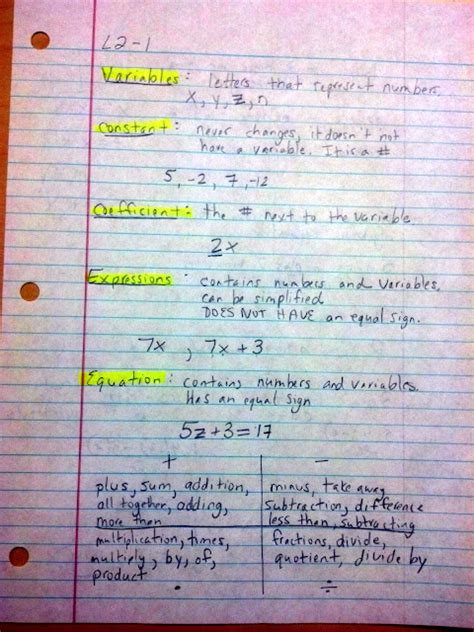 L2-1
Variables: letters that represent numbers.
x, y, z, n
Constant: never changes, it doesn't not
have a variable. It is a #
5, -2, 7, -12
Coefficient: the # next to the variable.
2x
Expressions: contains numbers and variables.
can be simplified
DOES NOT HAVE an equal sign.
7x , 7x + 3
Equation: contains numbers and variables.
Has an equal sign
5z + 3 = 17
+ −
plus, sum, addition, minus, take away
all together, adding, subtraction, difference
more then less then, subtracting
multiplication, times, fractions, divide,
multiply, by, of, quotient, divide by
product
• ÷